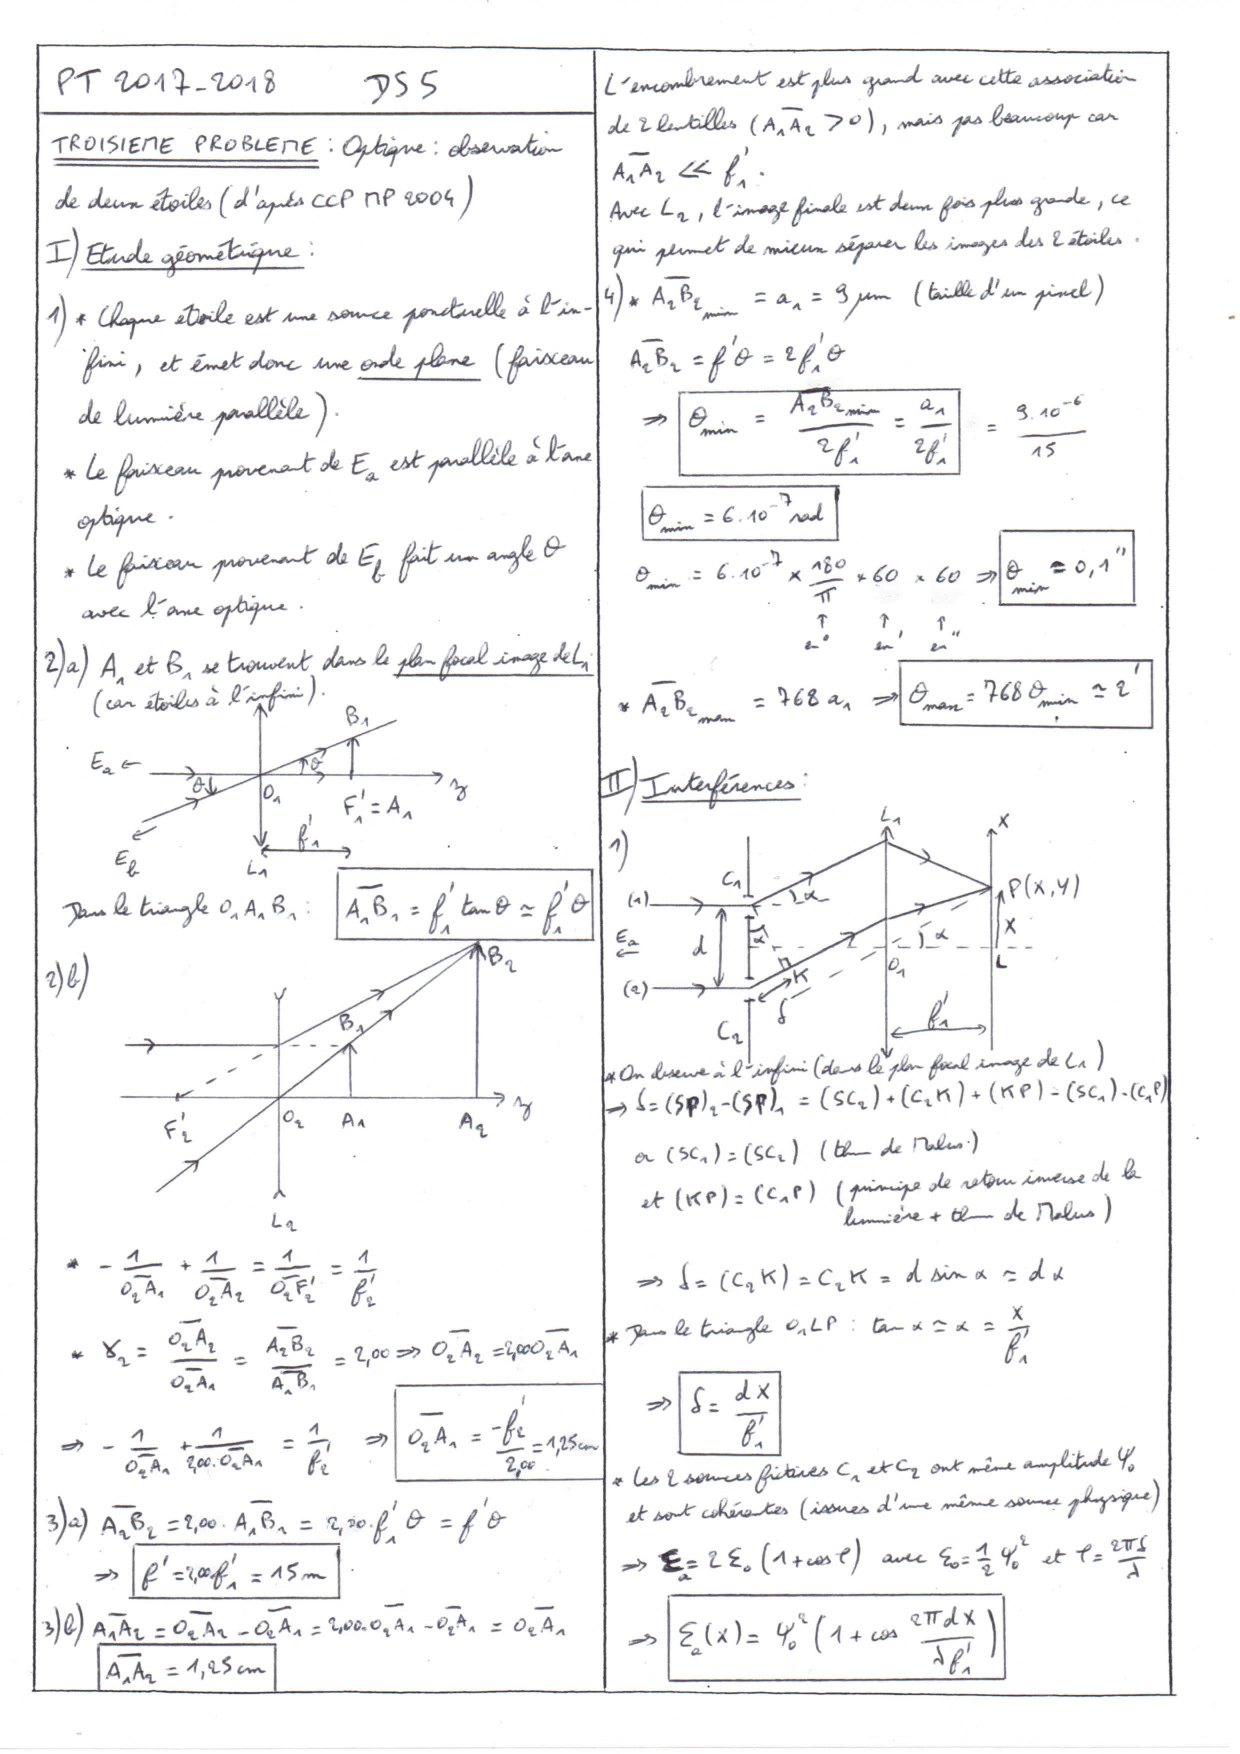 PT 2017-2018 DS5
TROISIEME PROBLEME : Optique : observation
de deux étoiles (d'après CCP MP 2004)
I) Etude géométrique :
1) * Chaque étoile est une source ponctuelle à l'in-
fini, et émet donc une onde plane (faisceau
de lumière parallèle).
* Le faisceau provenant de Ea est parallèle à l'axe
optique.
* Le faisceau provenant de Eb fait un angle θ
avec l'axe optique.
2)a) A₁ et B₁ se trouvent dans le plan focal image de L₁
(car étoiles à l'infini).
B₁
Ea ←
θ
θ
O₁
F₁' = A₁
z
Eb
L₁
f₁'
Dans le triangle O₁A₁B₁ : A₁B₁ = f₁' tan θ ≃ f₁' θ
2)b)
B₂
B₁
F₂'
O₂
A₁
A₂
z
L₂
* - 1/O₂A₁ + 1/O₂A₂ = 1/O₂F₂' = 1/f₂'
* γ₂ = O₂A₂/O₂A₁ = A₂B₂/A₁B₁ = 2,00 ⇒ O₂A₂ = 2,00 O₂A₁
⇒ - 1/O₂A₁ + 1/2,00.O₂A₁ = 1/f₂' ⇒ O₂A₁ = -f₂'/2,00 = 1,25cm
3)a) A₂B₂ = 2,00. A₁B₁ = 2,00. f₁' θ = f' θ
⇒ f' = 2,00 f₁' = 15 m
3)b) A₁A₂ = O₂A₂ - O₂A₁ = 2,00.O₂A₁ - O₂A₁ = O₂A₁
A₁A₂ = 1,25 cm
L'encombrement est plus grand avec cette association
de 2 lentilles (A₁A₂ > 0), mais pas beaucoup car
A₁A₂ << f₁'.
Avec L₂, l'image finale est deux fois plus grande, ce
qui permet de mieux séparer les images des 2 étoiles.
4) * A₂B₂ min = a₁ = 9 μm (taille d'un pixel)
A₂B₂ = f'θ = 2f₁'θ
⇒ θmin = A₂B₂min/2f₁' = a₁/2f₁' = 9.10⁻⁶/15
θmin = 6.10⁻⁷ rad
θmin = 6.10⁻⁷ × 180/π × 60 × 60 ⇒ θmin ≃ 0,1"
↑ ↑ ↑
en ° en ' en "
* A₂B₂ max = 768 a₁ ⇒ θmax = 768 θmin ≃ 2'
II) Interférences :
1)
L₁
X
C₁
α
P(X,Y)
(1)
Ea
←
d
α
α
X
O₁
L
(2)
K
δ
C₂
f₁'
* On observe à l'infini (dans le plan focal image de L₁)
⇒ δ = (SP)₂ - (SP)₁ = (SC₂) + (C₂K) + (KP) - (SC₁) - (C₁P)
or (SC₁) = (SC₂) (thm de Malus)
et (KP) = (C₁P) (principe de retour inverse de la
lumière + thm de Malus)
⇒ δ = (C₂K) = C₂K = d sin α ≃ d α
* Dans le triangle O₁LP : tan α ≃ α = X/f₁'
⇒ δ = dX/f₁'
* Les 2 sources fictives C₁ et C₂ ont même amplitude Ψ₀
et sont cohérentes (issues d'une même source physique)
⇒ Ea = 2 E₀ (1 + cos φ) avec E₀ = 1/2 Ψ₀² et φ = 2πδ/λ
⇒ Ea(X) = Ψ₀² (1 + cos 2πdX/λf₁')